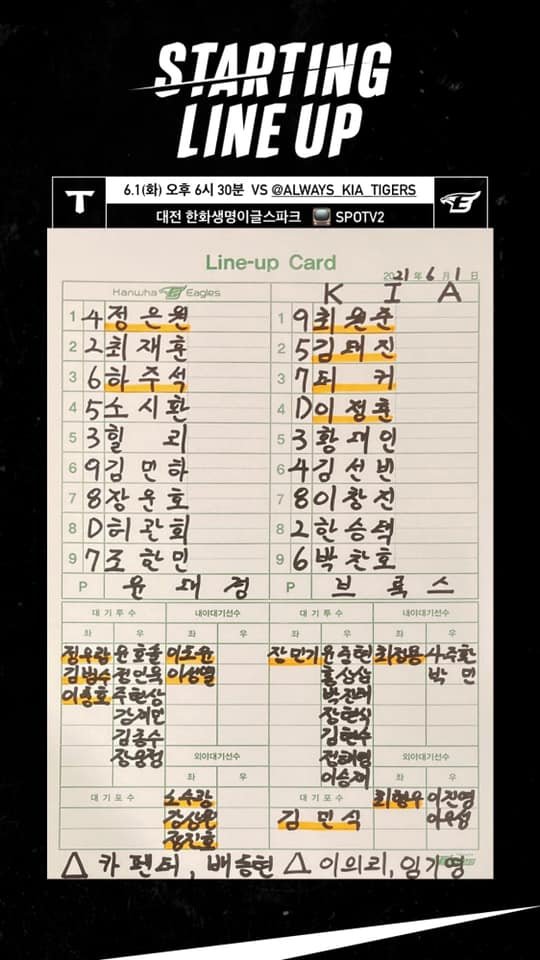 STARTING
LINE UP
6.1(화) 오후 6시 30분 VS @ALWAYS_KIA_TIGERS
대전 한화생명이글스파크 SPOTV2
Line-up Card
2021年 6月 1日
Kanwha Eagles K I A
1 4 정은원 1 9 최원준
2 2 최재훈 2 5 김태진
3 6 하주석 3 7 터커
4 5 노시환 4 D 이정훈
5 3 힐리 5 3 황대인
6 9 김민하 6 4 김선빈
7 8 장운호 7 8 이창진
8 D 허관회 8 2 한승택
9 7 조한민 9 6 박찬호
P 윤대경 P 브룩스
대기투수 내야대기선수 대기투수 내야대기선수
좌 우 좌 우 좌 우 좌 우
정우람 윤호솔 이도윤 장민기 윤중현 최정용
김범수 이성열 홍상삼 박민
이승호 주현상 박진태
강재민 장현식
김종수 김현수
외야대기선수 외야대기선수
이승재
좌 우 좌 우
대기포수 노수광 대기포수 최형우 이진영
강상원 김민식 이우성
정진호
△ 카펜터, 배동현 △ 이의리, 임기영